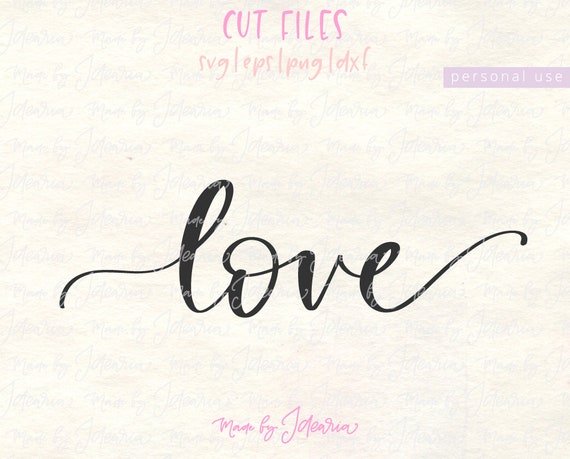 CUT FILES
svg|eps|png|dxf
personal use
love
Made by Idearia